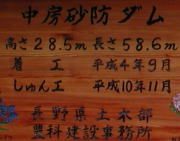 中房砂防ダム
高さ28.5m 長さ58.6m
着工 平成4年9月
しゅん工 平成10年11月
長野県土木部
豊科建設事務所